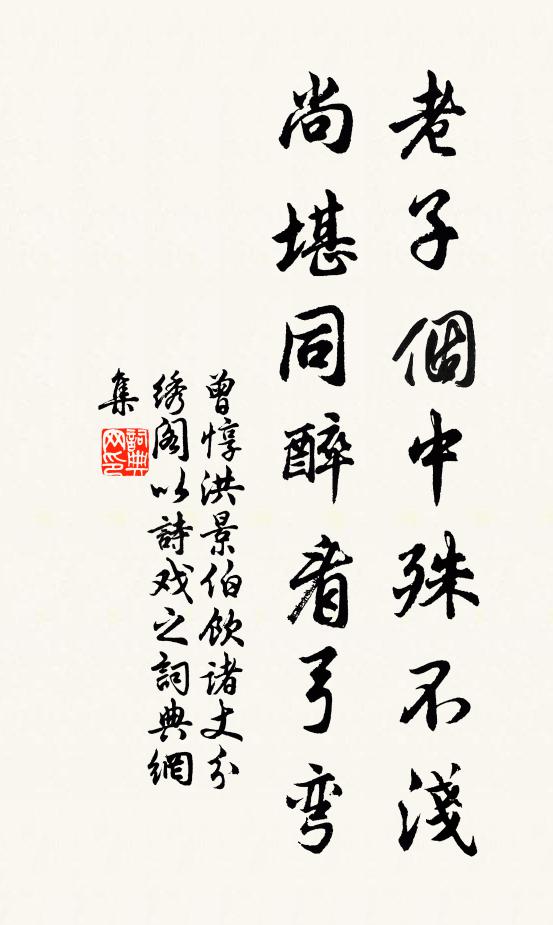 老子個中殊不淺
尚堪同醉看弓彎
曾惇洪景伯飲諸丈分
绣阁以詩戏之詞典網
集
詞典
网印